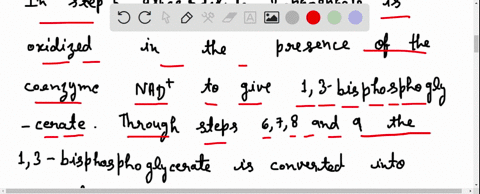 In step
is
oxidized in the presence of the
coenzyme NAD⁺ to give 1,3-bisphosphogly
-cerate. Through steps 6,7,8 and 9 the
1,3-bisphosphoglycerate is converted into